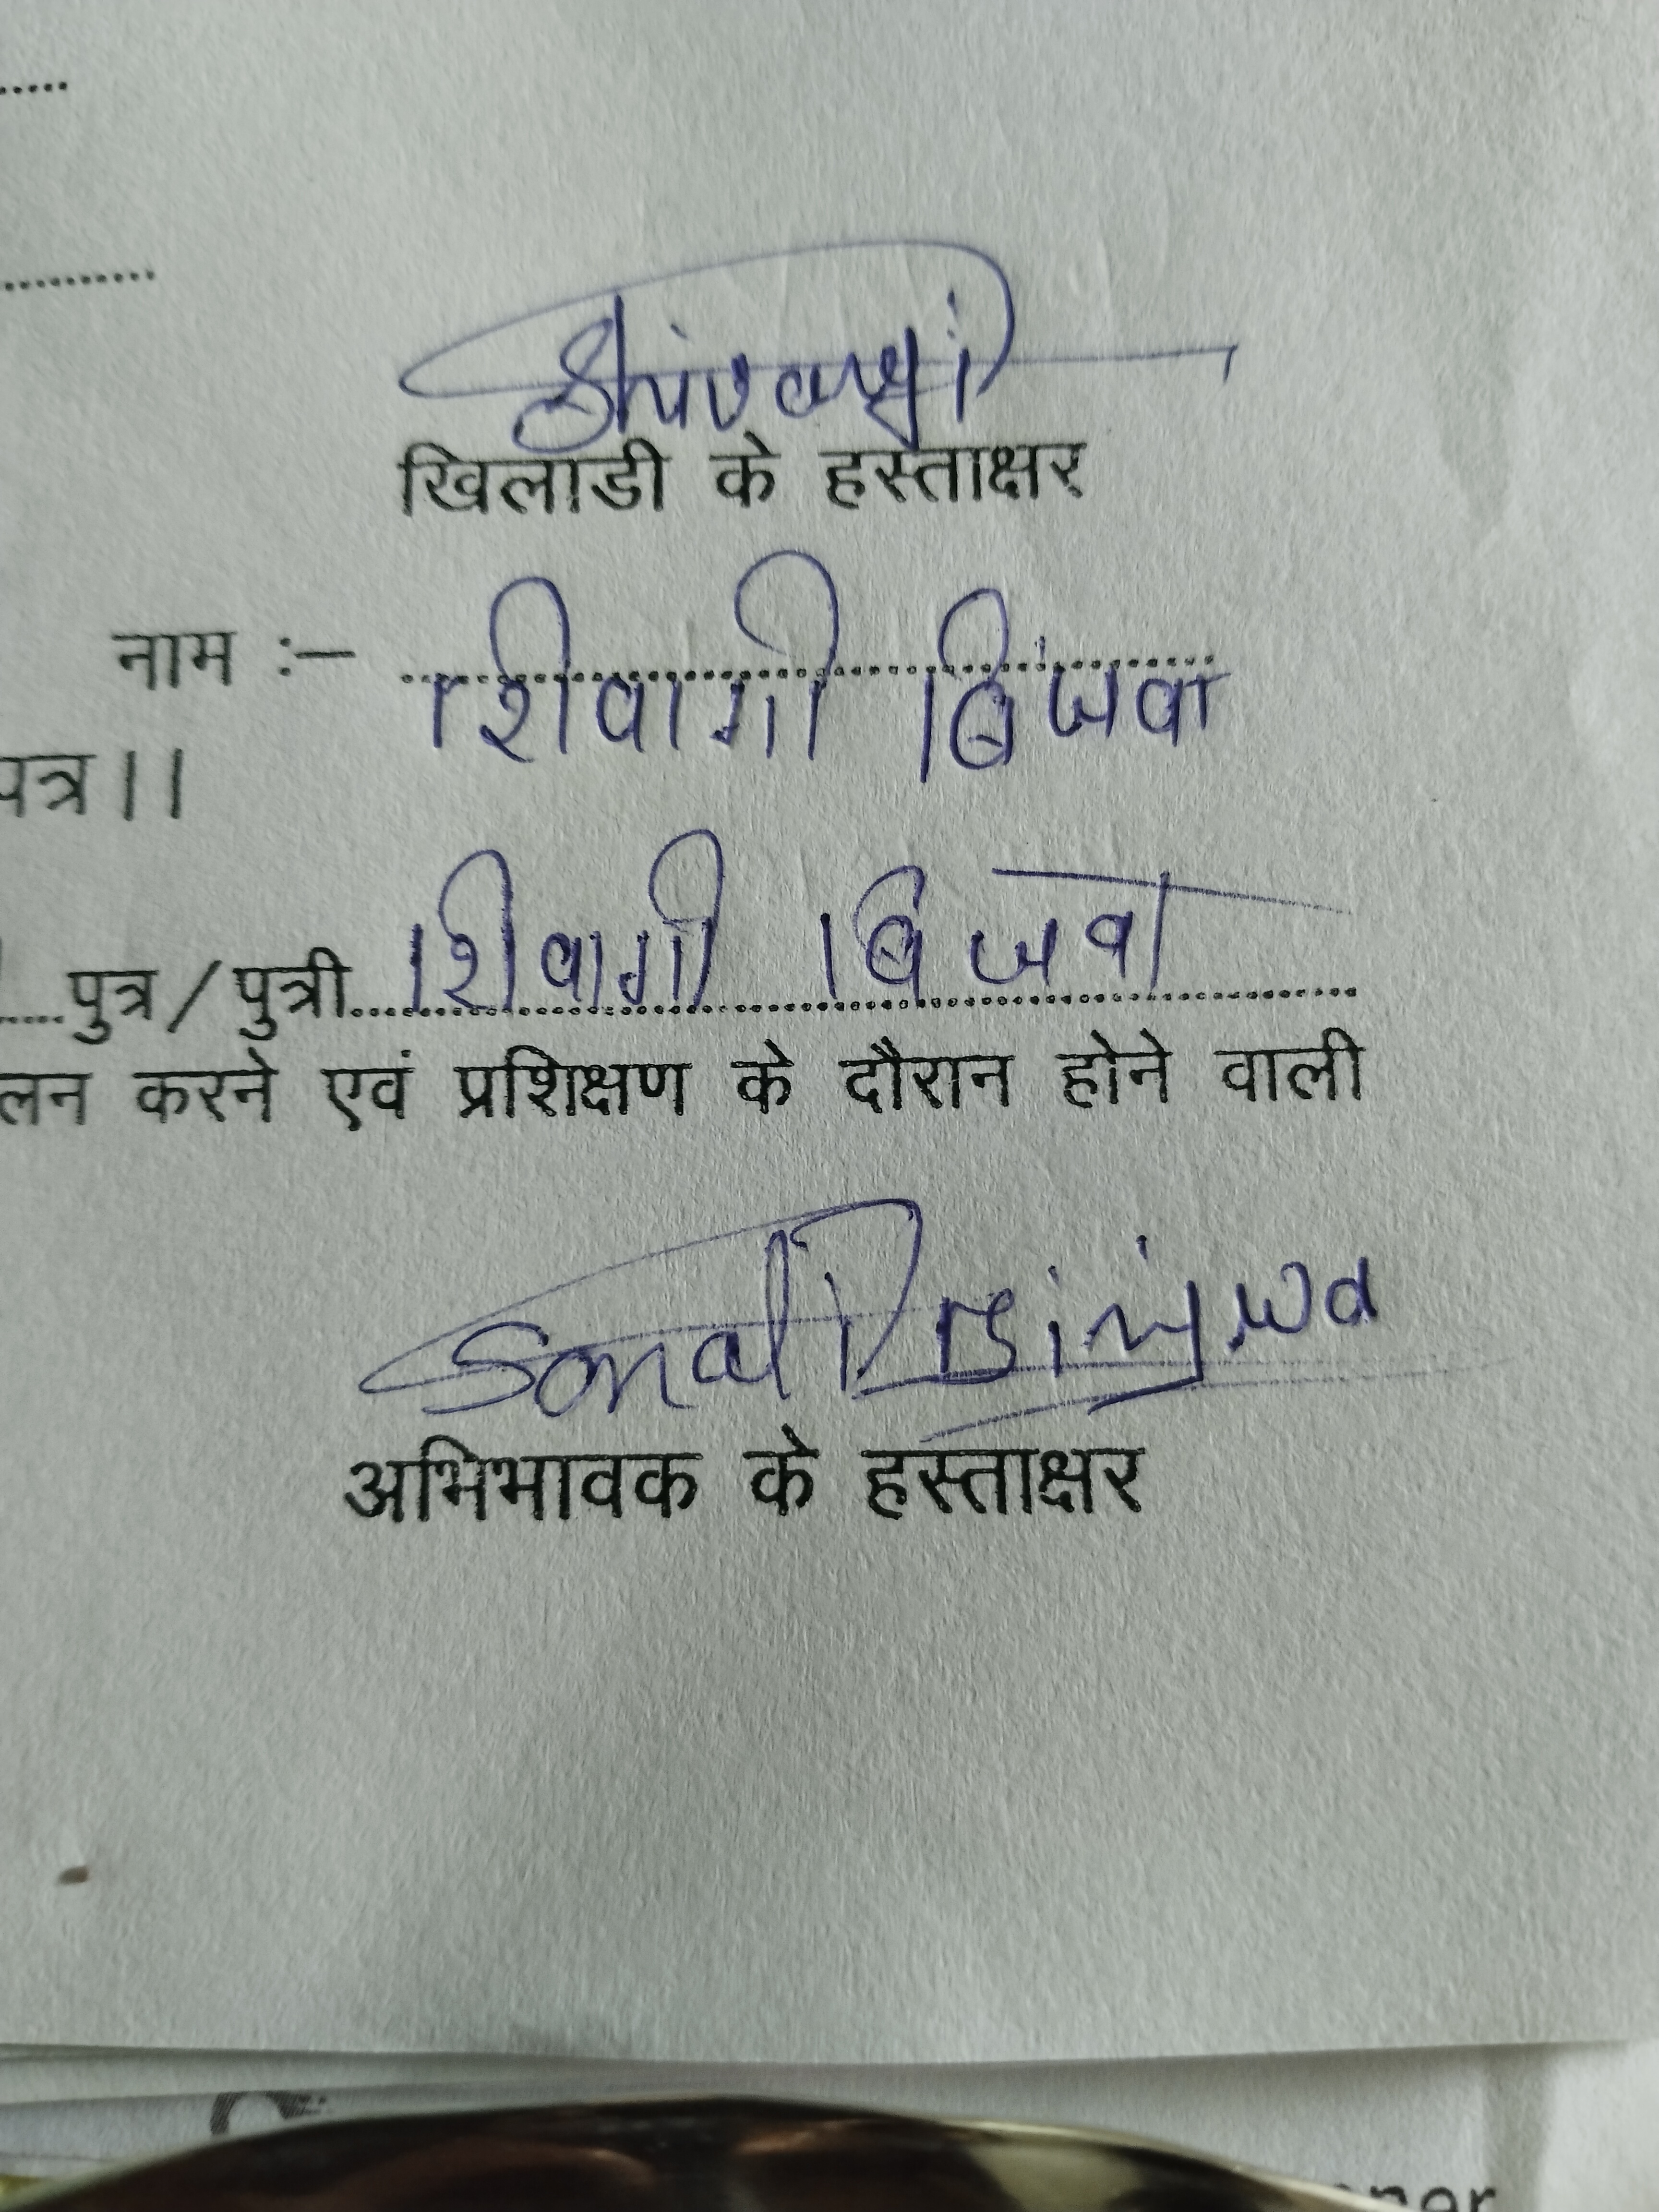 Shivangi
खिलाडी के हस्ताक्षर
नाम :– शिवागी बिंजवा
पत्र।।
पुत्र/पुत्री शिवागी बिंजवा
लन करने एवं प्रशिक्षण के दौरान होने वाली
Sonal Binjwa
अभिभावक के हस्ताक्षर